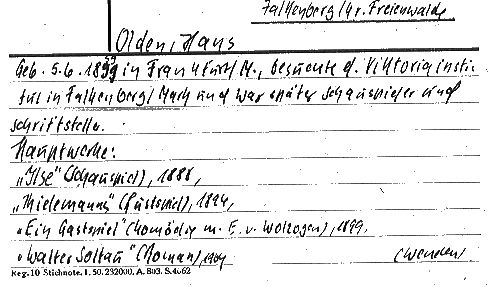 Falkenberg/Kr. Freienwalde
Olden, Hans
Geb. 5.6.1859 in Frankfurt/M., besuchte d. Viktoriainsti-
tut in Falkenberg/Mark und war später Schauspieler und
Schriftsteller.
Hauptwerke:
„Ilse" (Schauspiel), 1888,
„Thielemanns" (Lustspiel), 1894,
„Ein Gastspiel" (Komödie m. E. v. Wolzogen), 1899,
„Walter Soltau" (Roman), 1904
(wenden)
Reg. 10 Stichnote. I. 50. 232000. A. 803. S. 4662